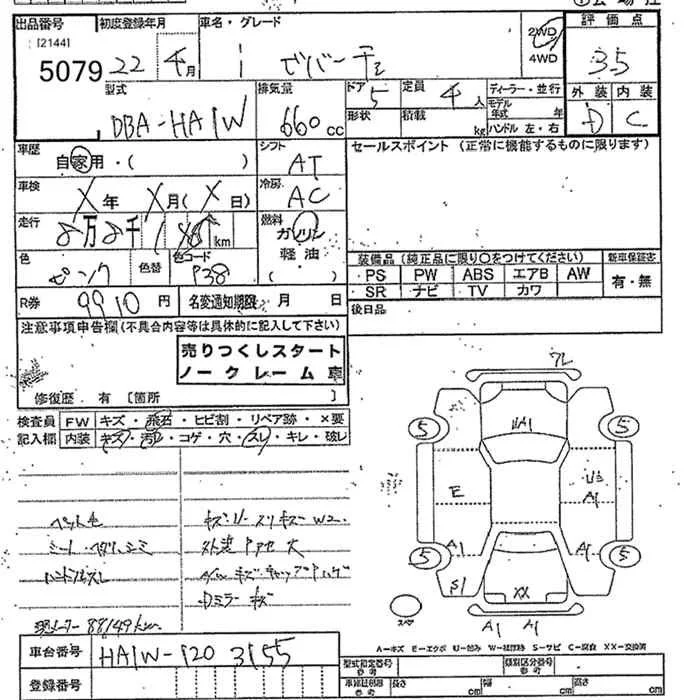 出品番号 初度登録年月 車名・グレード 2WD 4WD 評価点
[2144]
5079 22 4月 i ビバーチェ 3.5
型式 排気量 ドア 定員 ディーラー・並行 外装 内装
DBA-HA1W 660cc 5 4人 モデル年式 年 D C
形状 積載 kg ハンドル左・右
車歴 自家用・( ) シフト AT セールスポイント(正常に機能するものに限ります)
車検 X年 X月(X日) 冷房 AC
走行 8万8千1 km 燃料 ガソリン 軽油 ( )
色 ピンク 色替 色コード P38
装備品(純正品に限り○をつけてください) 新車保証書
PS PW ABS エアB AW 有・無
SR ナビ TV カワ
R券 9910円 名変通知期限 月 日 後日品
注意事項申告欄(不具合内容等は具体的に記入して下さい)
売りつくしスタート
ノークレーム車
修復歴 有 [箇所
検査員 FW キズ・飛石・ヒビ割・リペア跡・×要
記入欄 内装 キズ・汚レ・コゲ・穴・スレ・キレ・破レ
ペット毛
外装
Dミラーキズ
88149km
車台番号 HA1W-120 3155
登録番号
5 5 5 5
E
A1 A1 A1
S1
XX
A1 A1
スペア
A-キズ E-エクボ U-凹み W-補修跡 S-サビ C-腐食 XX-交換済
型式指定番号 参考 類別区分番号 参考
長さ cm 幅 cm 高さ cm